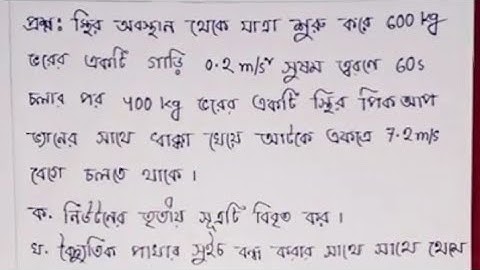 প্রশ্ন: স্থির অবস্থান থেকে যাত্রা শুরু করে 600 kg
ভরের একটি গাড়ি 0.2 m/s² সুষম ত্বরণে 60s
চলার পর 400 kg ভরের একটি স্থির পিক আপ
ভ্যানের সাথে ধাক্কা খেয়ে আটকে একত্রে 7.2 m/s
বেগে চলতে থাকে।
ক. নিউটনের তৃতীয় সূত্রটি বিবৃত কর।
খ. বৈদ্যুতিক পাখার সুইচ বন্ধ করার সাথে সাথে থেমে